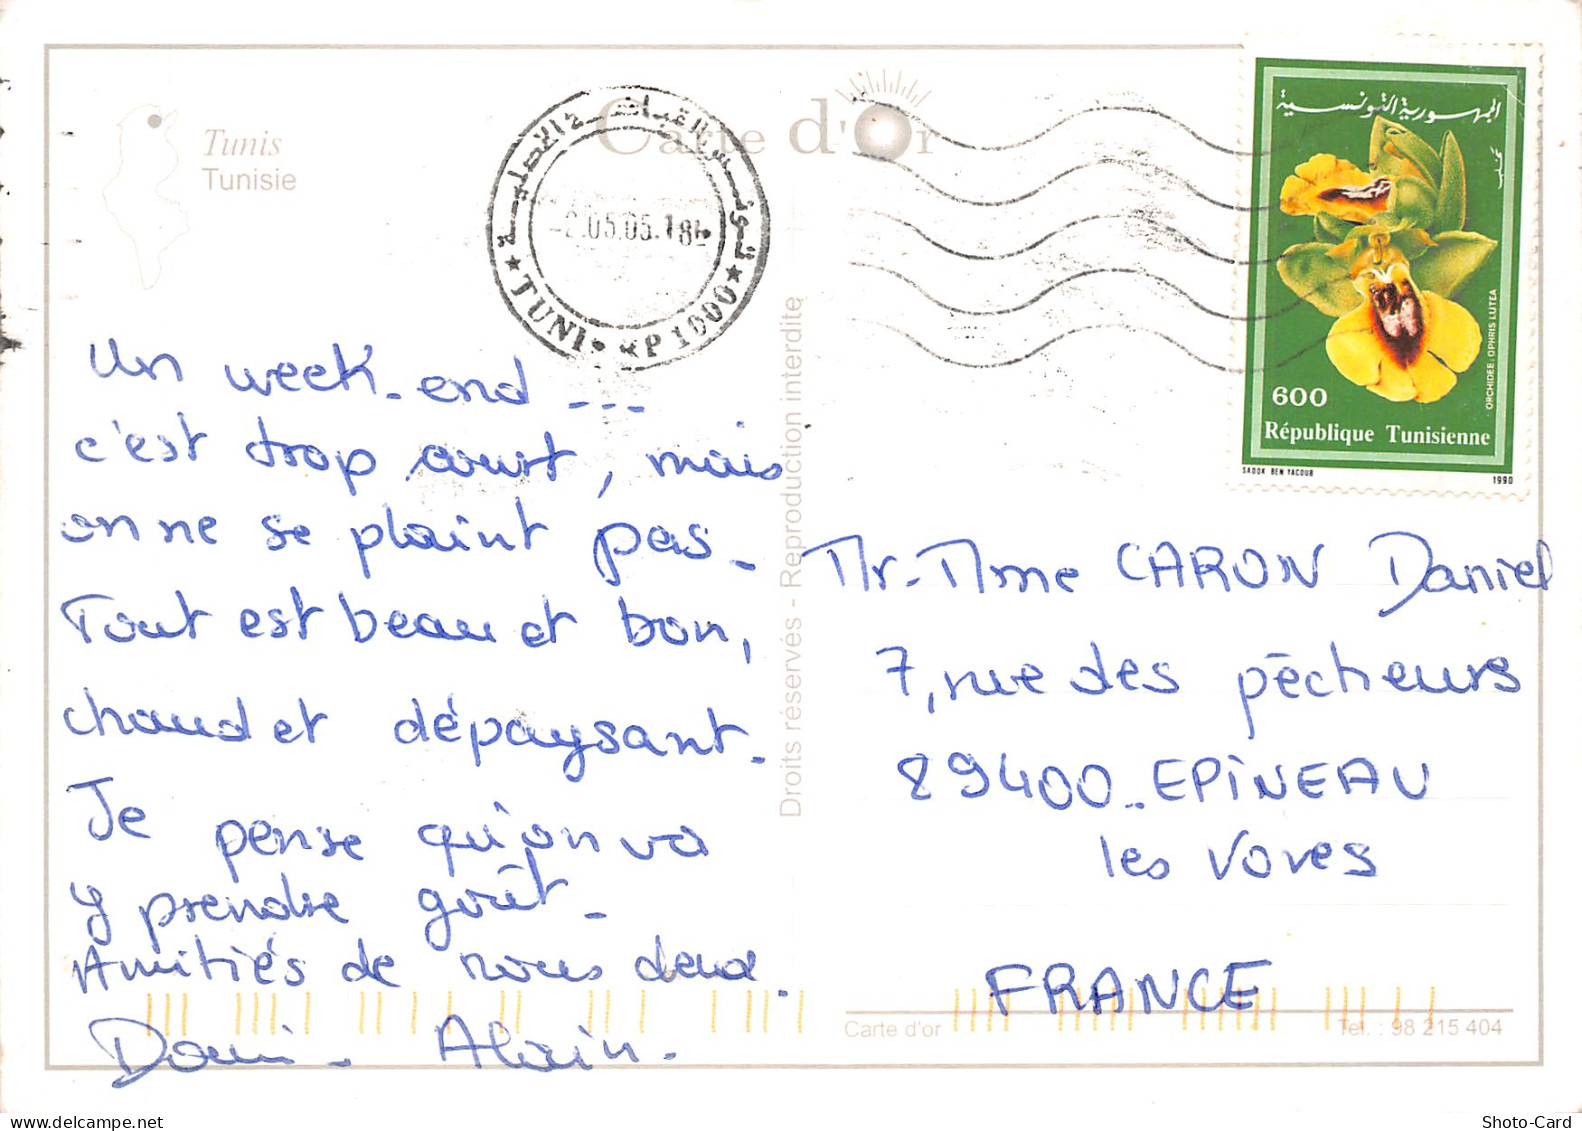 Tunis
Tunisie
Carte d'Or
-2.05.05.18
TUNI
RP 1000
الجمهورية التونسية
600
République Tunisienne
ORCHIDEE, OPHRIS LUTEA
SADOK BEN YACOUB
1990
Un week-end ---
c'est trop court, mais
on ne se plaint pas.
Tout est beau et bon,
chaud et dépaysant.
Je pense qu'on va
y prendre goût.
Amitiés de nous deux.
Domi - Alain.
Droits réservés - Reproduction interdite
Mr. Mme CARON Daniel
7, rue des pêcheurs
89400 .. EPINEAU
les Voves
FRANCE
Carte d'or
Tel. : 98 215 404
Shoto-Card
www.delcampe.net